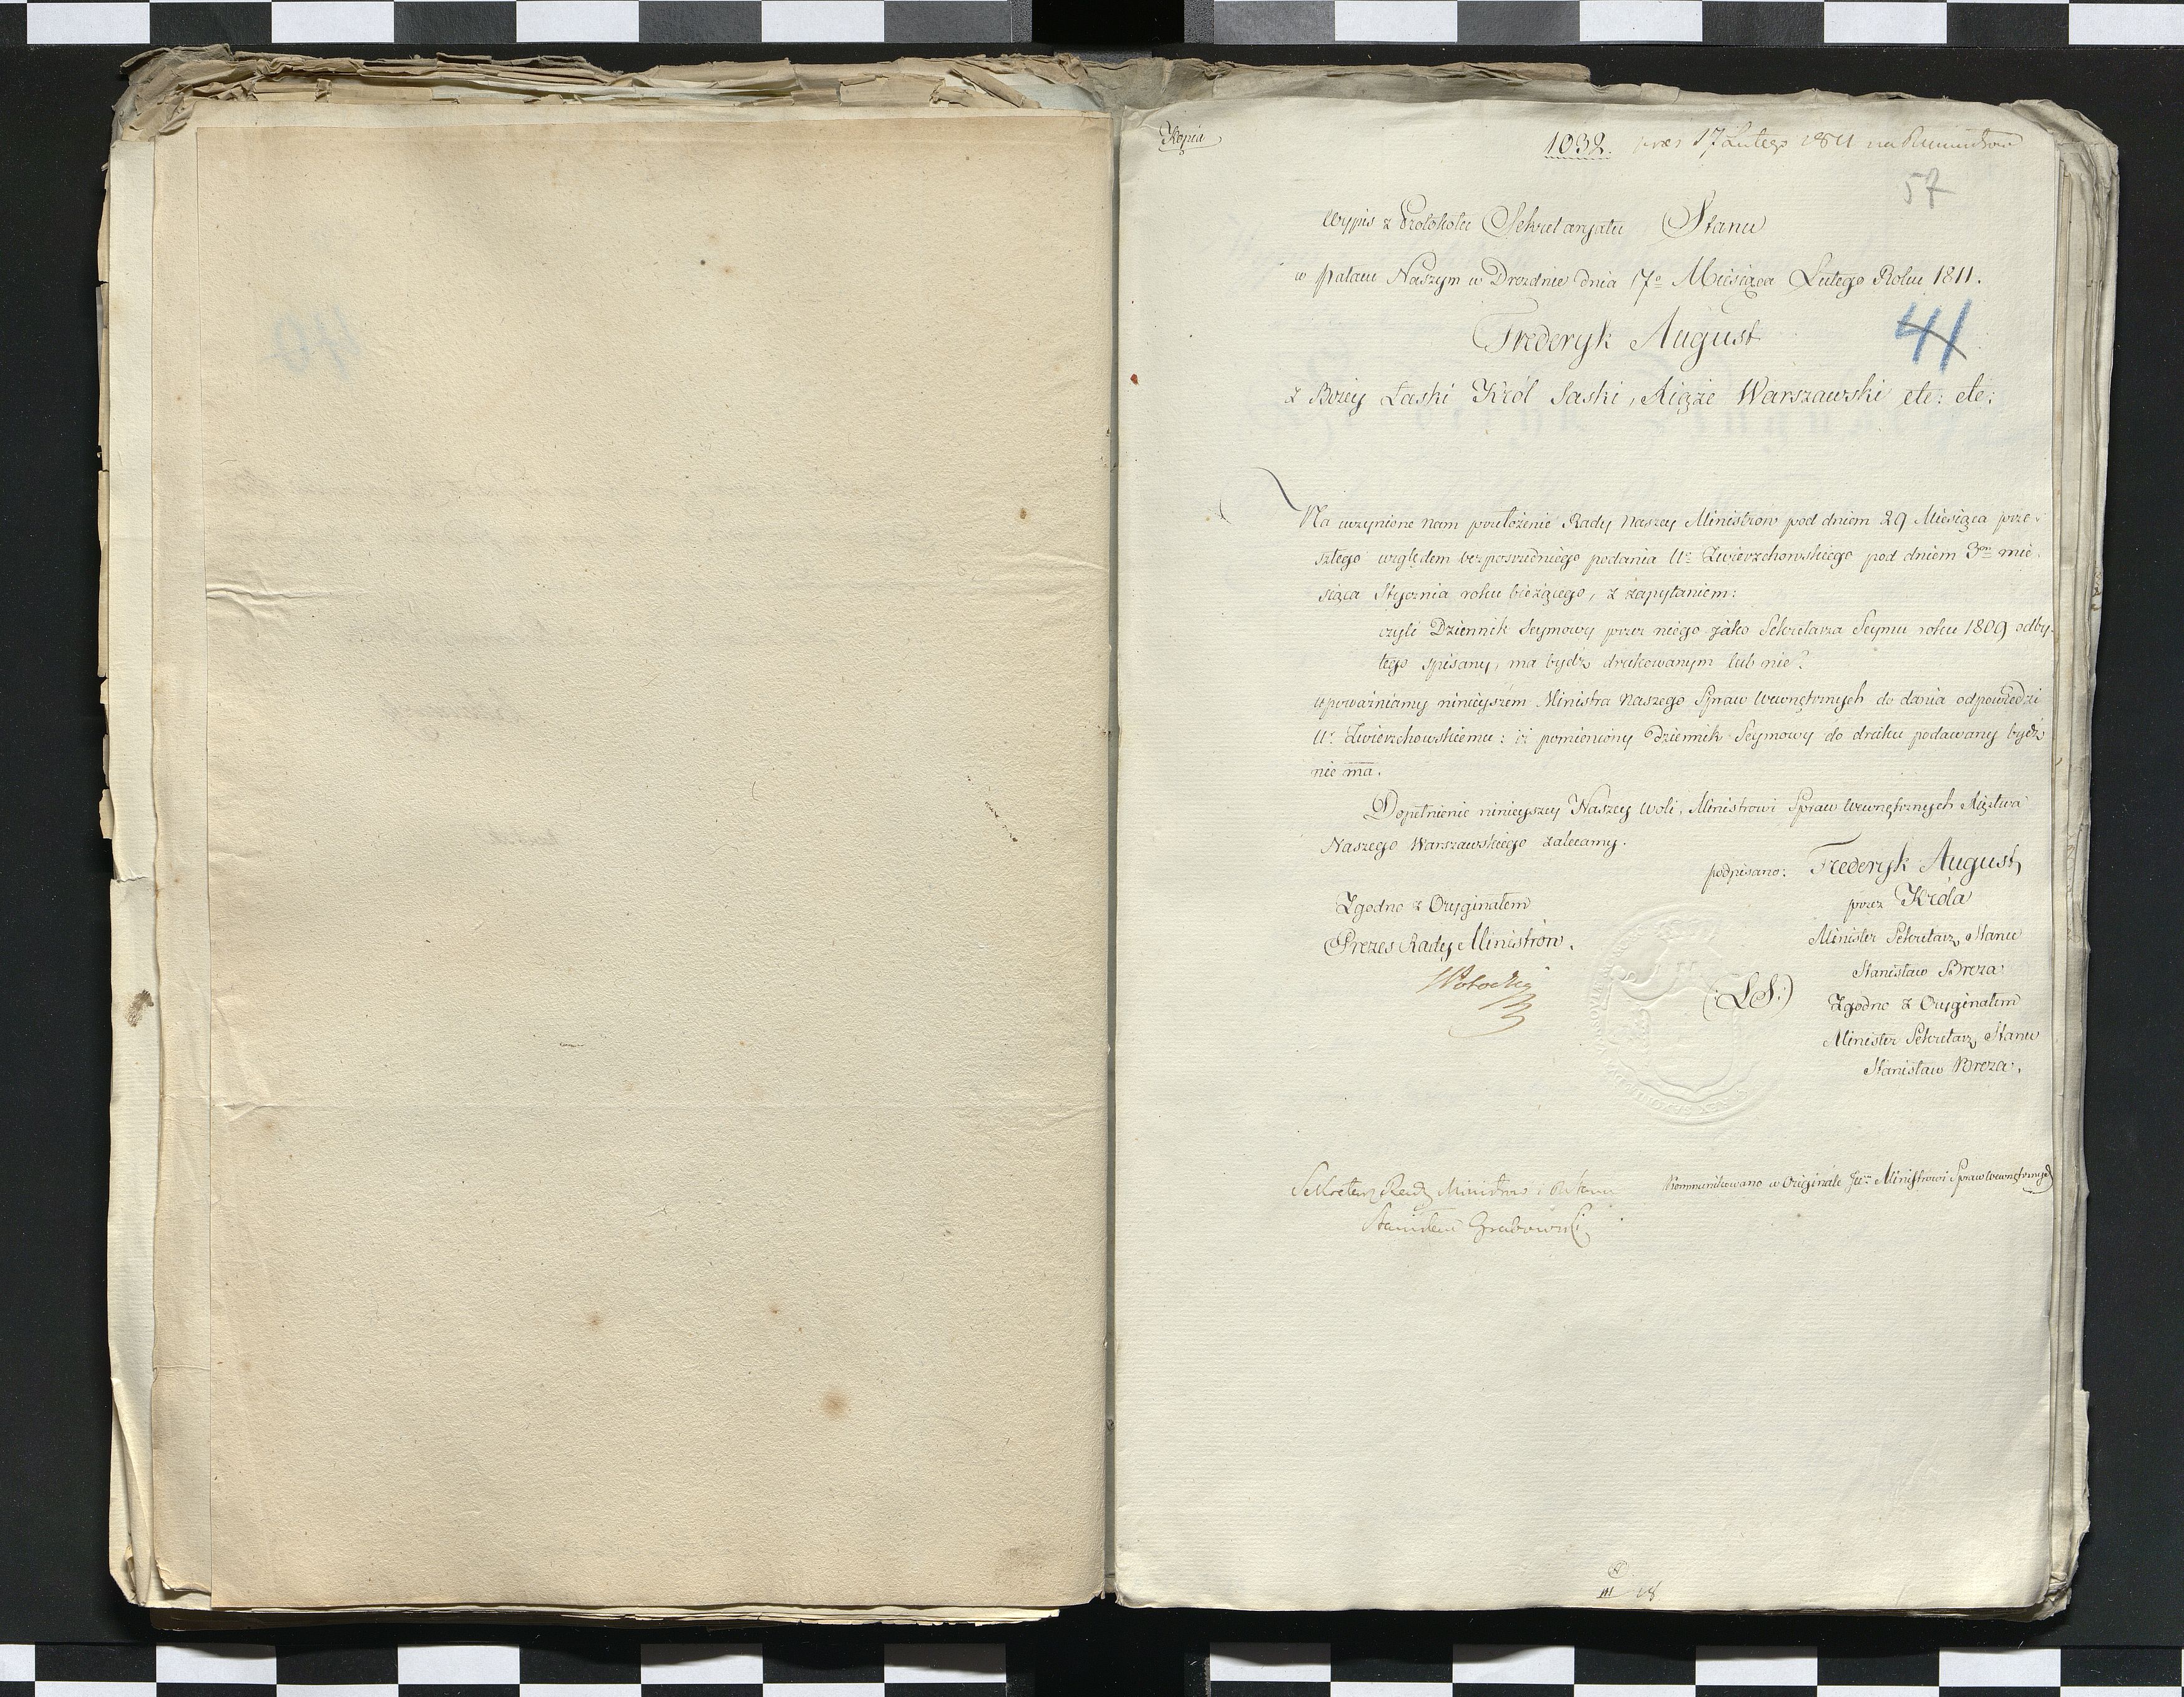 Kopia
1032. 17 Lutego 1811 na
57
Wypis z Protokołu Sekretaryatu Stanu
w Pałacu Naszym w Dreznie dnia 17º Miesiąca Lutego Roku 1811.
41
Frederyk August
z Bożey Łaski Król Saski, Xiąże Warszawski etc: etc:
Na uczynione nam przełożenie Rady Naszey Ministrow pod dniem 29 Miesiąca prze-
szłego względem bezposredniego podania Uº Zwierzchowskiego pod dniem 3m mie-
siąca Stycznia roku bieżącego, z zapytaniem:
czyli Dziennik Seymowy przez niego jako Sekretarza Seymu roku 1809 odby-
tego spisany, ma bydź drukowanym lub nie?
upoważniamy ninieyszem Ministra Naszego Spraw Wewnętrznych do dania odpowiedzi
Ur Zwierzchowskiemu: iż pomieniony Dziennik Seymowy do druku podawany bydź
nie ma.
Dopełnienie ninieyszey Naszey Woli, Ministrowi Spraw Wewnętrznych Xięztwa
Naszego Warszawskiego zalecamy.
podpisano: Frederyk August,
przez Króla
Minister Sekretarz Stanu
Stanisław Breza
(:LS:)
Zgodno z Oryginałem
Minister Sekretarz Stanu
Stanisław Breza.
Zgodno z Oryginałem
Prezes Rady Ministrow.
Sekretarz Rady Ministrow i
Stanisław Grabowski
Kommunikowano w Originale JW Ministrowi Spraw Wewnętrznych
III 18